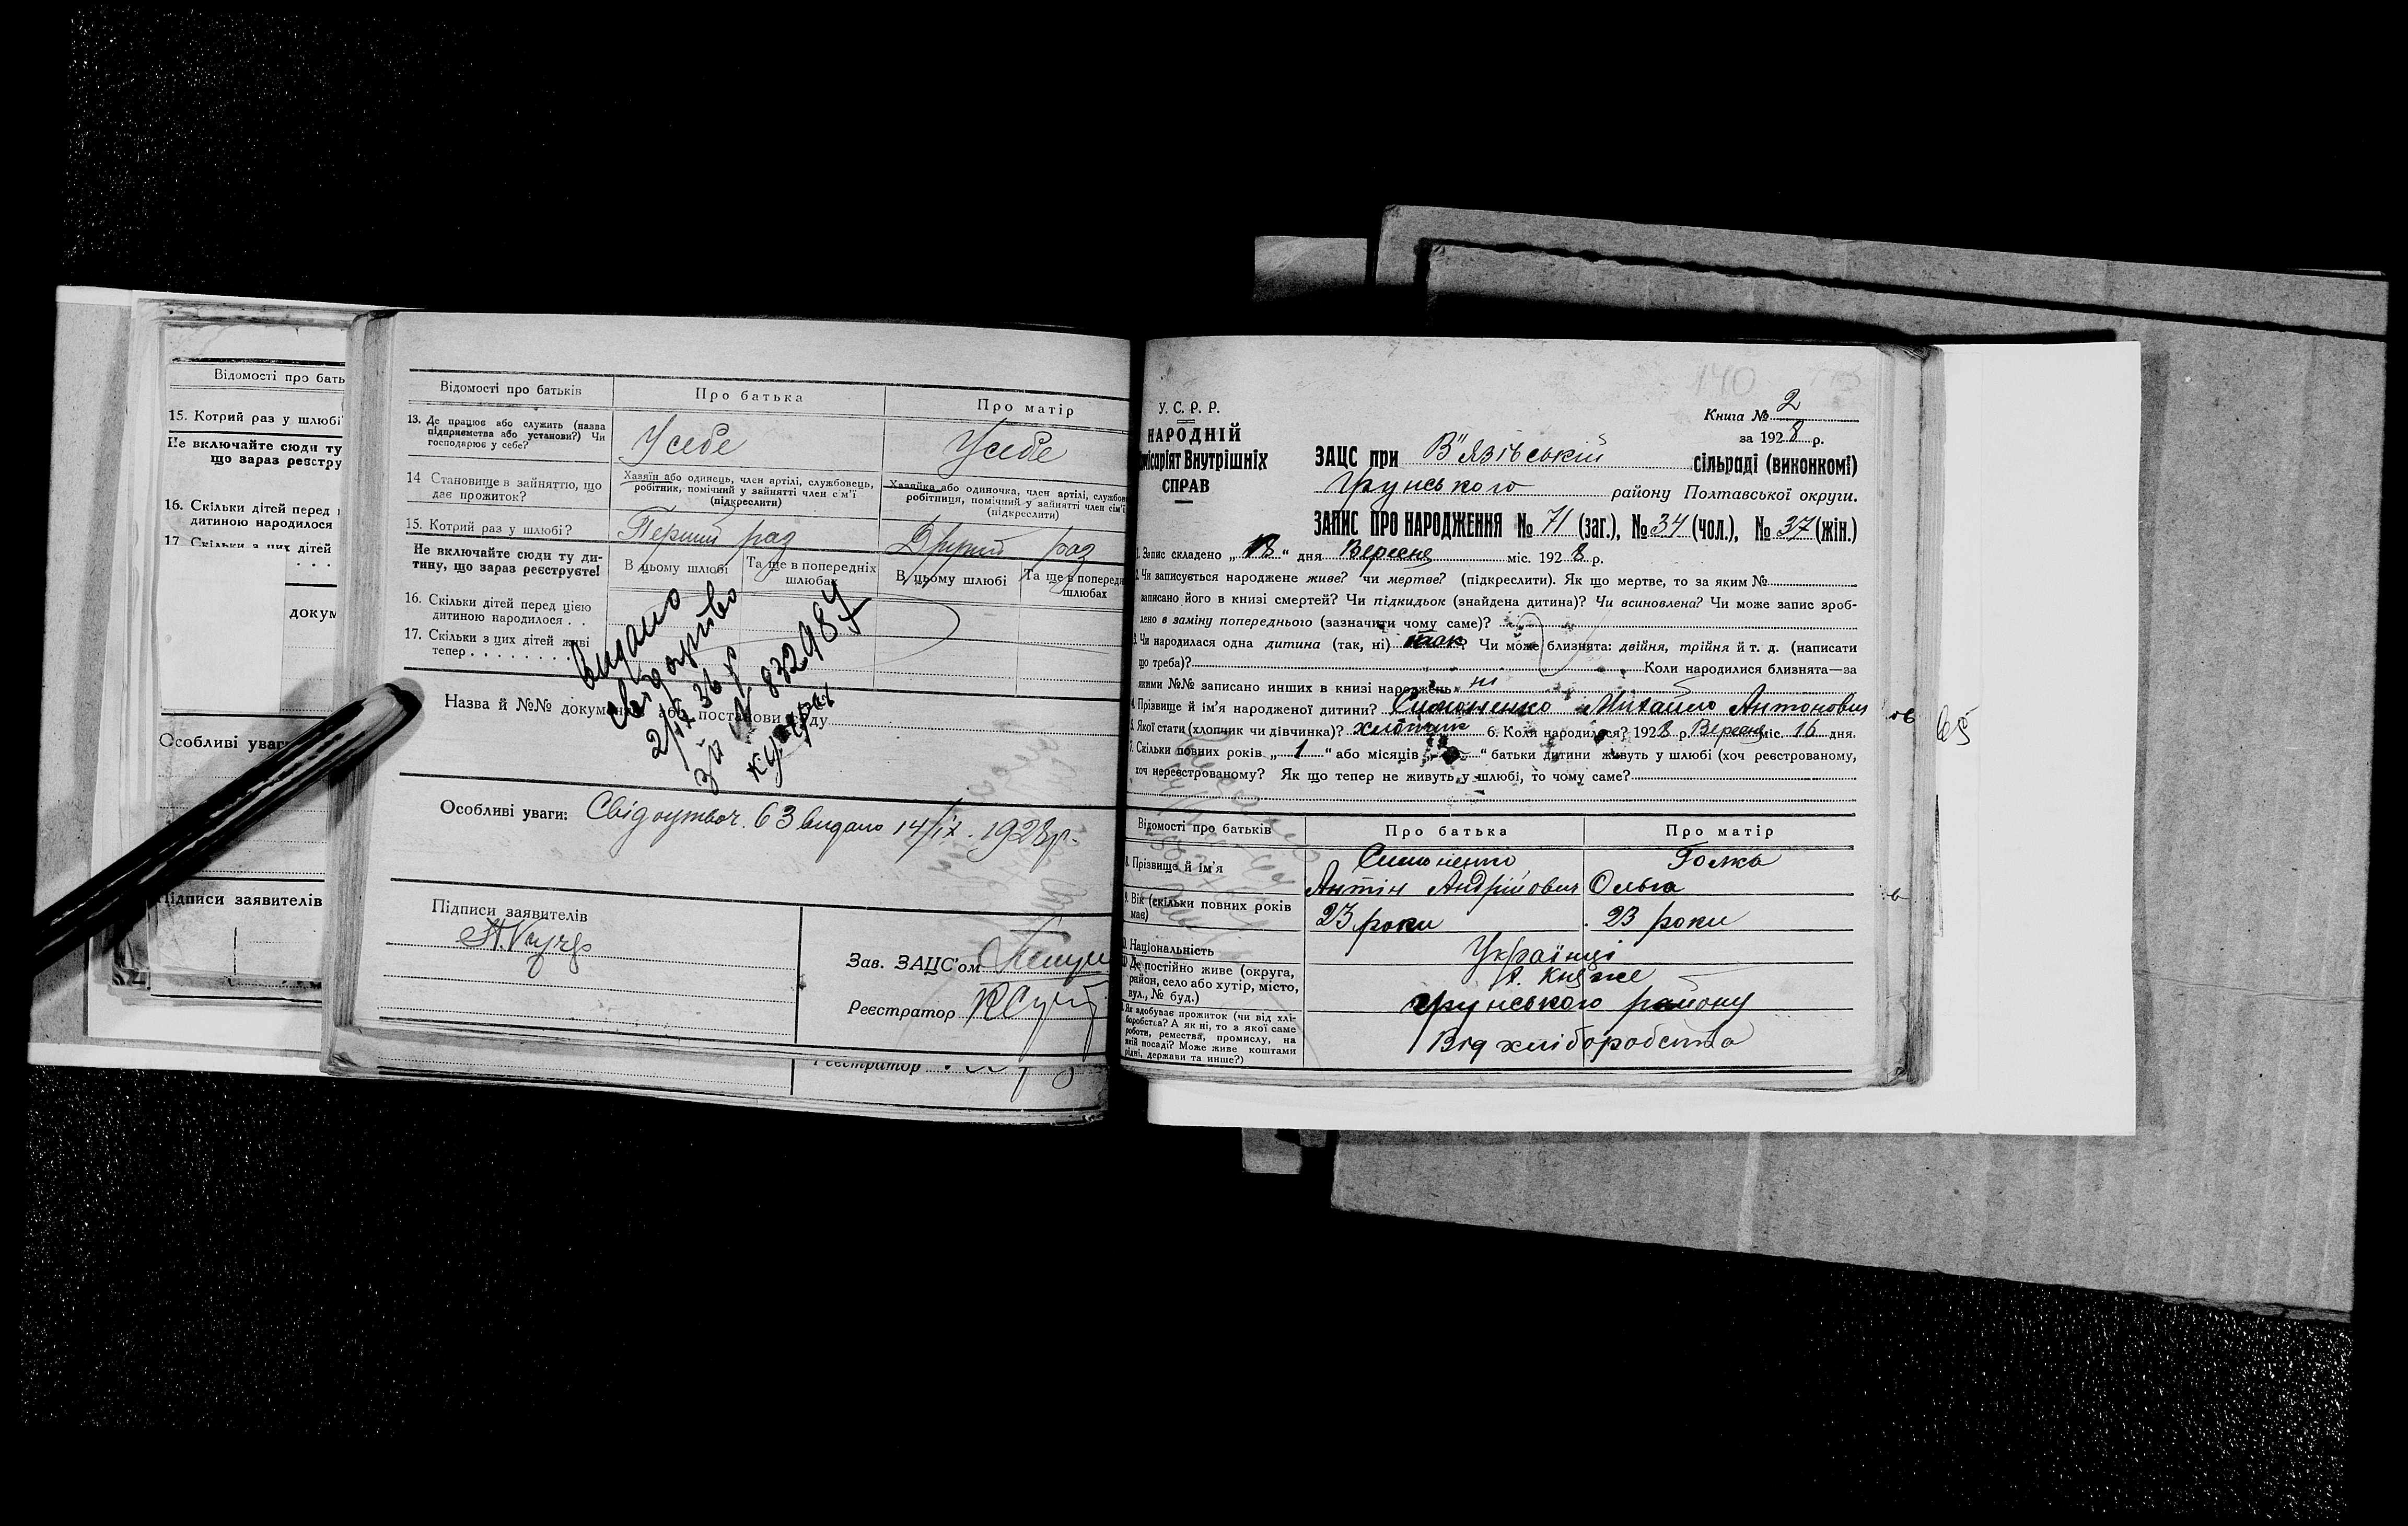 Відомості про бать
15. Котрий раз у шлюбі
Не включайте сюди ту
що зараз реєстру
16. Скільки дітей перед
дитиною народилося
17. Скільки з цих дітей
докум
Особливі уваг
Підписи заявителів
Відомості про батьків
Про батька
Про матір
13. Де працює або служить (назва
підприємства або установи?) Чи
господарює у себе?
У себе
У себе
14 Становище в зайняттю, що
дає прожиток?
Хазяїн або одинець, член артілі, службовець,
робітник, помічний у зайнятті член сім'ї
(підкреслити)
Хазяйка або одиночка, член артілі, службов
робітниця, помічний у зайнятті член сім'ї
(підкреслити)
15. Котрий раз у шлюбі?
Перший раз
Другий раз
Не включайте сюди ту ди-
тину, що зараз реєструєте!
В цьому шлюбі
Та ще в попередніх
шлюбах
В цьому шлюбі
Та ще в попередн
шлюбах
16. Скільки дітей перед цією
дитиною народилося . .
17. Скільки з цих дітей живі
тепер . . . . . . . . .
видано
2/IX 36 р
за N 832984
Назва й №№ докумен або постанови суду
Особливі уваги: 63 видано 14/IX - 1928р.
Підписи заявителів
Зав. ЗАЦС'ом
Реєстратор
Реєстратор
140
У. С. Р. Р.
НАРОДНІЙ
місаріят Внутрішніх
СПРАВ
Книга № 2
за 1928 р.
ЗАЦС при В"язівській сільраді (виконкомі)
Грунського району Полтавської округи.
ЗАПИС ПРО НАРОДЖЕННЯ № 71 (заг.), № 34 (чол.), № 37 (жін.)
1. Запис складено „18“ дня Вересня міс. 1928 р.
2. Чи записується народжене живе? чи мертве? (підкреслити). Як що мертве, то за яким №
записано його в книзі смертей? Чи підкидьок (знайдена дитина)? Чи всиновлена? Чи може запис зроб-
лено в заміну попереднього (зазначити чому саме)?
3. Чи народилася одна дитина (так, ні) так? Чи може близнята: двійня, трійня й т. д. (написати
що треба)? Коли народилися близнята—за
якими №№ записано инших в книзі народжень
4. Прізвище й ім'я народженої дитини? Симоненко Михайло Антонович
5. Якої стати (хлопчик чи дівчинка)? хлопчик 6. Коли народилося? 1928 р. Вересня міс. 16 дня.
7. Скільки повних років „ 1 “ або місяців „ “ батьки дитини живуть у шлюбі (хоч реєстрованому,
хоч нереєстрованому? Як що тепер не живуть у шлюбі, то чому саме?
65
Відомості про батьків
Про батька
Про матір
8. Прізвище й ім'я
Симоненко
Антін Андрійович
Голка
Ольга
9. Вік (скільки повних років
має)
23 роки
23 роки
Національність
Українці
Де постійно живе (округа,
район, село або хутір, місто,
вул., № буд.)
х. Княже
Грунського району
Як здобуває прожиток (чи від хлі-
боробства? А як ні, то з якої саме
роботи, ремества, промислу, на
якій посаді? Може живе коштами
рідні, держави та инше?)
Від хліборобства